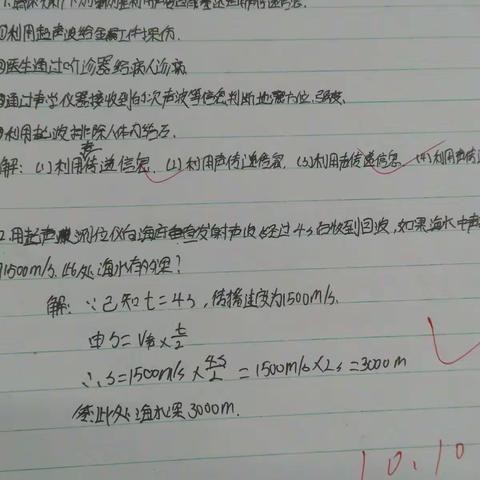 ①利用超声波给金属工件探伤.
②医生通过听诊器给病人诊病
③通过声学仪器接收到的次声波等信息判断地震方位、强度.
④利用超声波排除人体内结石.
解: (1)利用声传递信息. (2)利用声传递信息. (3)利用声传递信息. (4)利用声传
2.用超声测位仪向海底垂直发射声波,经过4s后收到回波,如果海水中声
1500m/s.此处海水有多深?
解: ∵已知t=4s,传播速度为1500m/s.
由S=V声×t/2
∴S=1500m/s×4s/2=1500m/s×2s=3000m
答:此处海水深3000m.
10.10